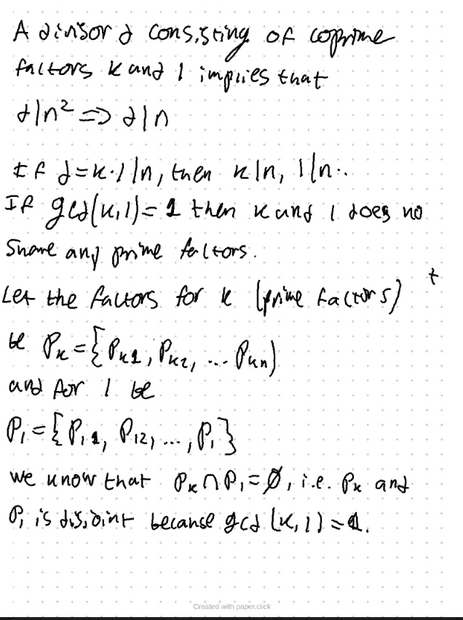 A divisor d consisting of coprime
factors k and l implies that
d|n² => d|n
If d=k·l|n, then k|n, l|n..
If gcd(k,l)=1 then k and l does no
share any prime factors.
Let the factors for k (prime factors) t
be Pₖ={Pₖ₁, Pₖ₂, ... Pₖₙ}
and for l be
Pₗ={Pₗ₁, Pₗ₂, ..., Pₗ}
we know that Pₖ∩Pₗ=∅, i.e. Pₖ and
Pₗ is disjoint because gcd(k,l)=1.
Created with paper.click